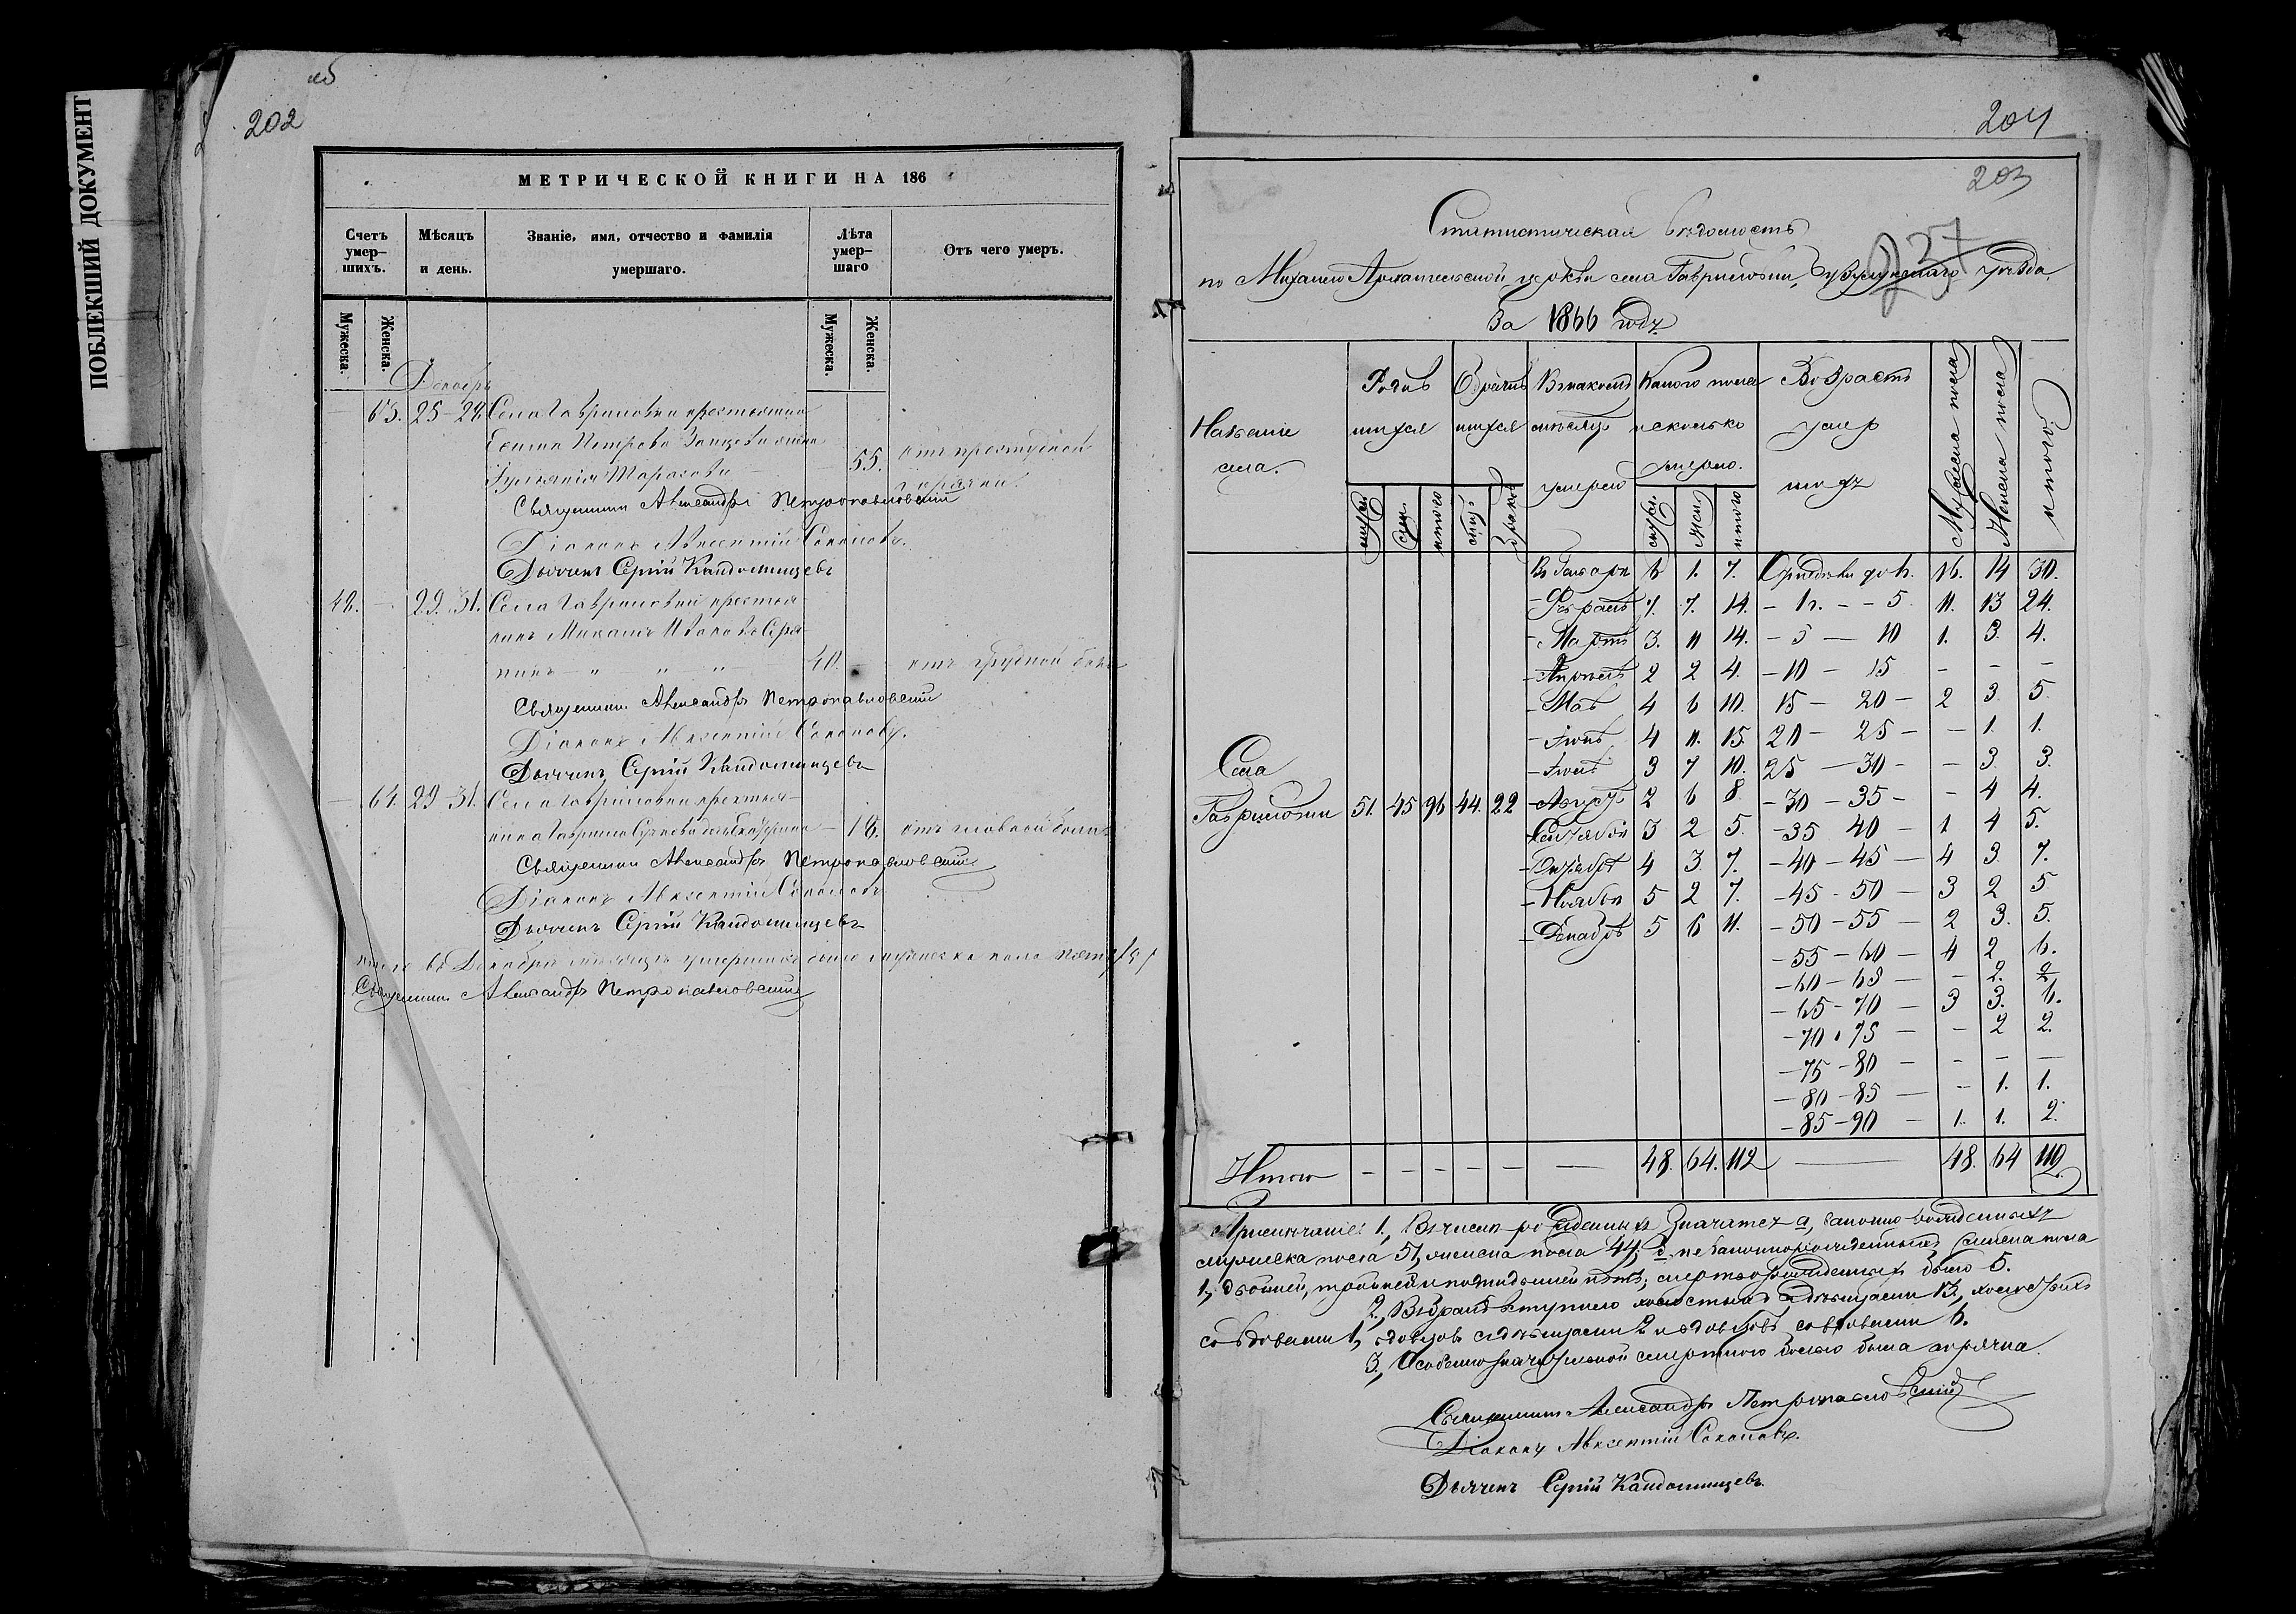 ПОБЛЕКШИЙ ДОКУМЕНТ
202
МЕТРИЧЕСКОЙ КНИГИ НА 186
Счетъ умер-шихъ. Мѣсяцъ и день. Званіе, имя, отчество и фамилія умершаго. Лѣта умер-шаго Отъ чего умеръ.
Мужеска. Женска. Мужеска. Женска.
Декабрь
63. 25 28. Села Гавриловки крестьянина
Петрова
Тарасова 55. отъ простудной
горячки.
Священникъ Александръ Петропавловскій
Діаконъ Авксентій Соколовъ.
Дьячекъ Сергій Кандомищевъ
48. — 29. 31. Села Гавриловки крестья-
нинъ
40. отъ грудной боли
Священникъ Александръ Петропавловскій
Діаконъ Авксентій Соколовъ.
Дьячекъ Сергій Кандомищевъ
— 64. 29 31. Села Гавриловки крестья-
нина Гавриила — 18. отъ головной боли
Священникъ Александръ Петропавловскій
Діаконъ Авксентій Соколовъ
Дьячекъ Сергій Кандомищевъ
Итого въ Декабрѣ мѣсяцѣ умершихъ было мужеска пола пять /5/
Священникъ Александръ Петропавловскій
204
203
237
Статистическая вѣдомость
по Михаило Архангельской церкви села Гавриловки, уѣзда,
За 1866 годъ
Названіе села. Родив шихся Брачив шихся Въ какомъ мѣсяцѣ умерло Какого пола и сколько умерло. Возрастъ умер шихъ Мужеска пола Женска пола итого
муж. жен. итого муж. жен. итого
Въ Январѣ 6 1. 7. до 1г. 16. 14 30.
— Февралѣ 7. 7. 14. — 1г. — — 5. 11. 13 24.
— Мартѣ 3. 11 14. — 5 — 10 1. 3. 4.
— Апрѣлѣ 2 2 4. — 10 — 15 — — —
— Маѣ 4 6 10. 15 — 20 — 2 3. 5.
— Іюнѣ 4 11. 15. 20 — 25 — — 1. 1.
— Іюлѣ 3 7 10. 25 — 30 — — 3. 3.
Села Гавриловки 51. 45 96 44. 22 — Августѣ 2 6 8 — 30 — 35 — — 4 4.
Сентябрѣ 3 2 5. — 35 40 — 1 4 5.
— Октябрѣ 4 3 7. — 40 — 45 — 4 3. 7.
— Ноябрѣ 5 2 7. — 45 - 50 — 3 2 5
— Декабрѣ 5 6 11. — 50 — 55 — 2 3. 5.
— 55 — 60 — 4 2 6.
— 60 — 65 — — 2. 2
— 65 — 70 — 3 3. 6.
— 70 - 75 — — 2 2.
— 75 — 80 — — — —
— 80 — 85 — — 1. 1.
— 85 — 90 — 1. 1. 2.
Итого — — — — — — 48. 64. 112 — 48. 64 112.
Примѣчаніе: 1., Въ числѣ рожденныхъ значится а, законно рожденныхъ
мужеска пола 51, женска пола 44; б. не законнорожденныхъ женска пола
1, двойней, тройней и нѣтъ; мертворожденныхъ было 5.
2., Въ бракъ вступило холостыхъ съ дѣвицами 13, холостыхъ
со вдовами 1, вдовцовъ съ дѣвицами 2 и вдовцовъ со вдовами 6.
3., Особенно болѣзнію была горячка.
Священникъ Александръ Петропавловскій
Діаконъ Авксентій Соколовъ.
Дьячекъ Сергій Кандомищевъ.